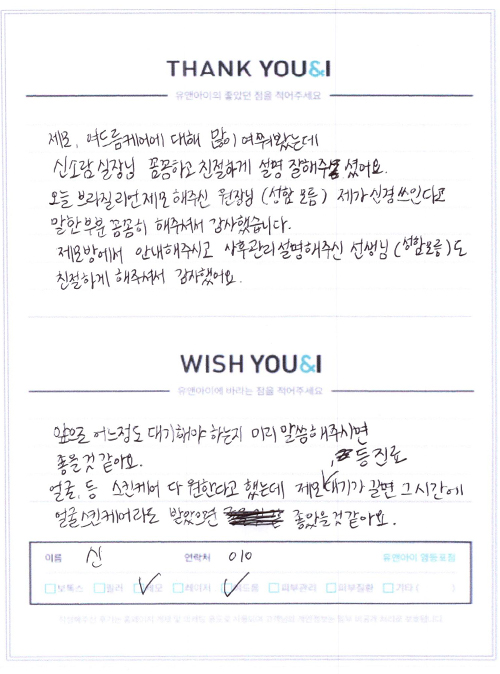 THANK YOU&I
유앤아이의 좋았던 점을 적어주세요
제모, 여드름케어에 대해 많이 여쭤봤는데
신소람 실장님 꼼꼼하고 친절하게 설명 잘해주셨어요.
오늘 브라질리언제모 해주신 원장님 (성함 모름) 제가 신경쓰인다고
말한부분 꼼꼼히 해주셔서 감사했습니다.
제모방에서 안내해주시고 사후관리설명해주신 선생님 (성함모름) 도
친절하게 해주셔서 감사했어요.
WISH YOU&I
유앤아이에 바라는 점을 적어주세요
앞으로 어느정도 대기해야 하는지 미리 말씀해주시면
좋을것 같아요.
, 등진료
얼굴, 등 스킨케어 다 원한다고 했는데 제모대기가 길면 그시간에
얼굴스킨케어라도 받았으면 좋았을것같아요.
이름 신 연락처 010 유앤아이 명동포점
보톡스 필러 제모 레이저 여드름 피부관리 피부질환 기타 ( )